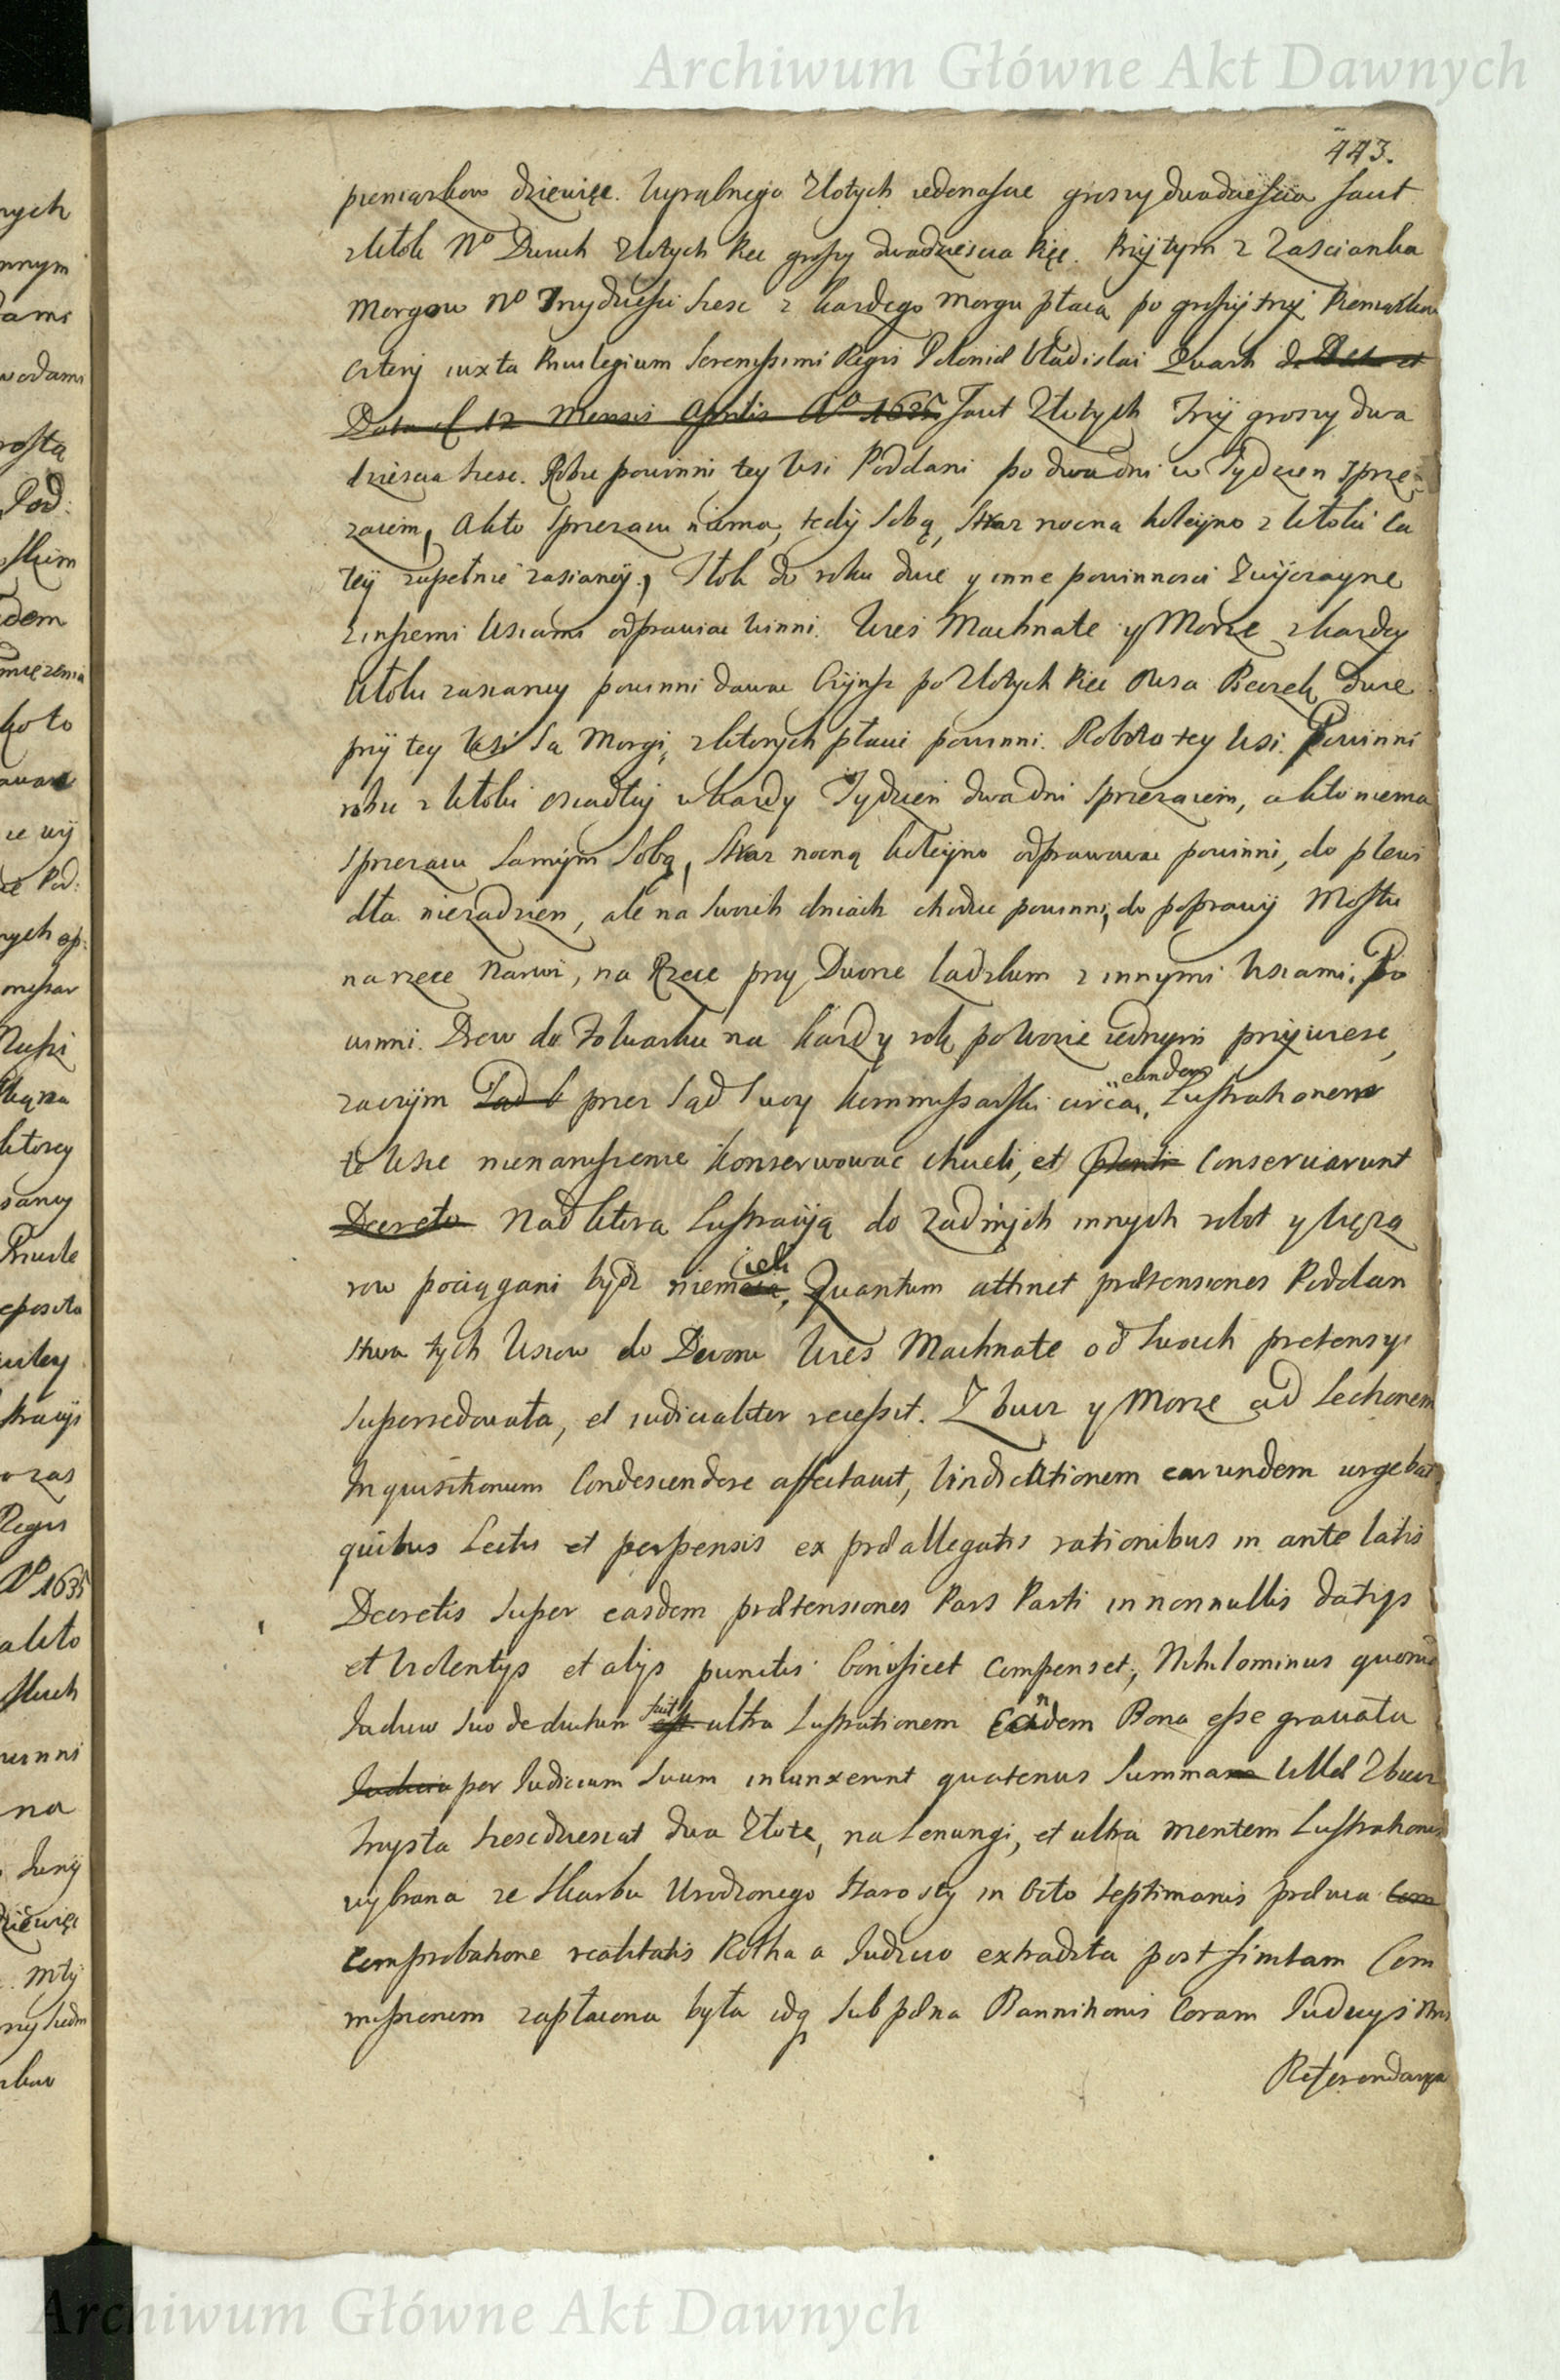 Archiwum Główne Akt Dawnych
443.
pieniązkow dziewięc. Czynsznego Złotych iedenascie groszy dwadziescia facit
z Włok No Dwuch Złotych Pięc groszy dwadziescia Pięc. Przytym z Zascianka
Morgow No Trzydziesci szesc z kazdego Morgu płacą po groszy trzy Pieniązkow
cztery iuxta Priuilegium Serenissimi Regis Poloniæ Vladislai Quarti de Dat et
Data 12 Mensis Aprilis Ao 1635 facit Złotych Trzy groszy dwa
dziescia szesc. Robic powinni tey Wsi Poddani po dwa dni w Tydzien sprzę
zaiem, a kto sprzezaiu niema, tedy sobą, Straz nocna koleyno z Włoki ca
łey zupełnie zasianey, Tłok do roku dwie y inne powinnosci zwyczayne
z inszemi Wsiami odprawiac winni. Wies Machnate y Morze z kazdey
Włoki zasianey powinni dawac Czynsz po Złotych Pięc Owsa Beczek dwie
przy tey Wsi są Morgi, z ktorych płacic powinni. Robota tey Wsi. Powinni
robic z Włoki osiadłey w kazdy Tydzien dwa dni sprzezaiem, a kto niema
sprzezaiu samym sobą, Straz nocną koleyno odprawowac powinni, do plewi
dła nie zadzien, ale na swoich dniach chodzic powinni, do poprawy Mostu
na rzece Narwi, na Rzece przy Dworze Ladzkim z innymi Wsiami, Po
winni. Drew do Folwarku na kazdy rok po Wozie iednym przywiesc,
zaczym Sad przez Sąd swoy Kommissarski circa eandem Lustrationem
te Wsie nienaruszenie konserwowac chcieli, et Conservarunt
Decreto Nad ktora Lustracyą do zadnych innych robot y cięza
row pociągani bydz niemaią ieli, Quantum attinet prætensiones Poddan
stwa tych Wsiow do Dworu Wies Machnate od swoich pretensyi
supersedowała, et iudicialiter recessit. Zbucz y Morze ad Lectionem
Inquisitionum Condescendere affectavit, Vindicationem earundem urgebat
quibus Lectis et perpensis ex præallegatis rationibus in ante latis
Decretis super easdem prætensiones Pars Parti in nonnullis datijs
et Violentijs et alijs punctis Bonificet Compenset, Nihilominus quoniam
Iudicio suo deductum est fuit ultra Lustrationem Eandem Bona esse gravata
Iudicio per Iudicium suum iniunxerunt quatenus Summa Villæ Zbucz
trzysta szescdziesiat dwa Złote, na Lenungi, et ultra mentem Lustrationis
wybrana ze Skarbu Urodzonego Starosty in Octo Septimanis prævia Com
comprobatione realitatis Rotha a Iudicio extradita post finitam Com
missionem zapłacona była idq sub pœna Bannitionis Coram Iudicijs
Referendarya
Archiwum Główne Akt Dawnych